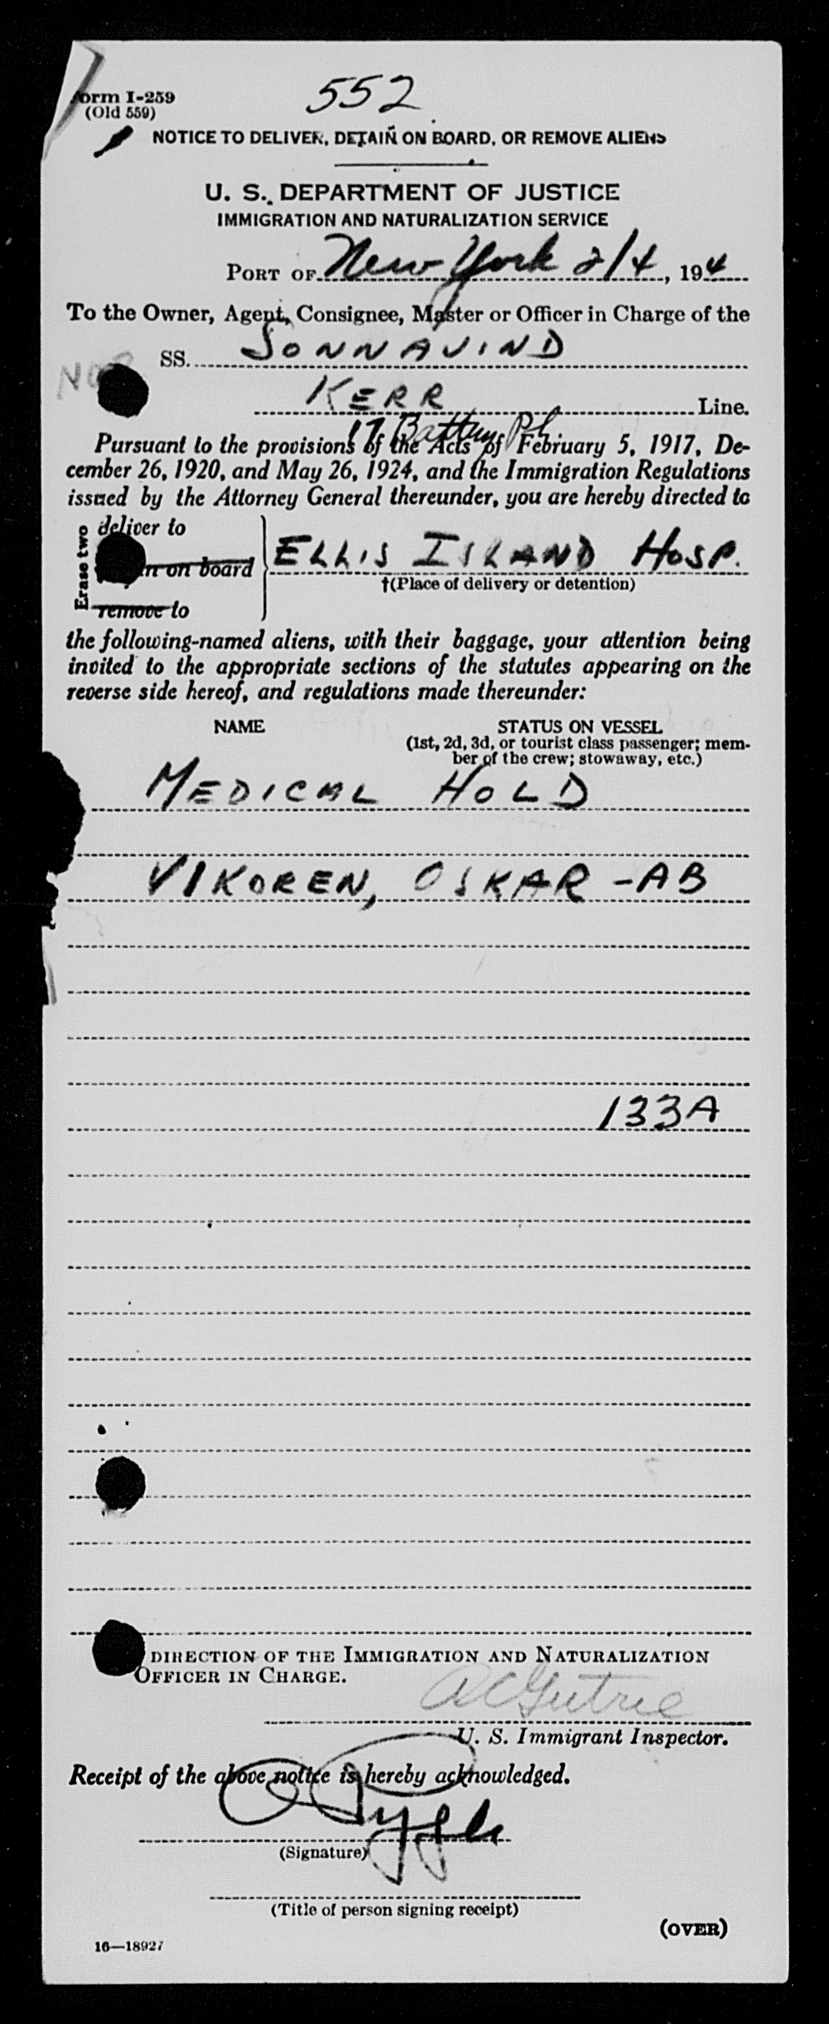 Form I-259
(Old 559)
552
NOTICE TO DELIVER, DETAIN ON BOARD, OR REMOVE ALIENS
U. S. DEPARTMENT OF JUSTICE
IMMIGRATION AND NATURALIZATION SERVICE
PORT OF New York 2/4, 194
To the Owner, Agent, Consignee, Master or Officer in Charge of the
NOR SS. SONNAVIND
KERR Line.
17 Battery Pl.
Pursuant to the provisions of the Acts of February 5, 1917, De-
cember 26, 1920, and May 26, 1924, and the Immigration Regulations
issued by the Attorney General thereunder, you are hereby directed to
Erase two
deliver to
on board ELLIS ISLAND HOSP.
†(Place of delivery or detention)
remove to
the following-named aliens, with their baggage, your attention being
invited to the appropriate sections of the statutes appearing on the
reverse side hereof, and regulations made thereunder:
NAME STATUS ON VESSEL
(1st, 2d, 3d, or tourist class passenger; mem-
ber of the crew; stowaway, etc.)
MEDICAL HOLD
VIKOREN, OSKAR - AB
133A
DIRECTION OF THE IMMIGRATION AND NATURALIZATION
OFFICER IN CHARGE.
U. S. Immigrant Inspector.
Receipt of the above notice is hereby acknowledged.
(Signature)
(Title of person signing receipt)
(OVER)
16—18927